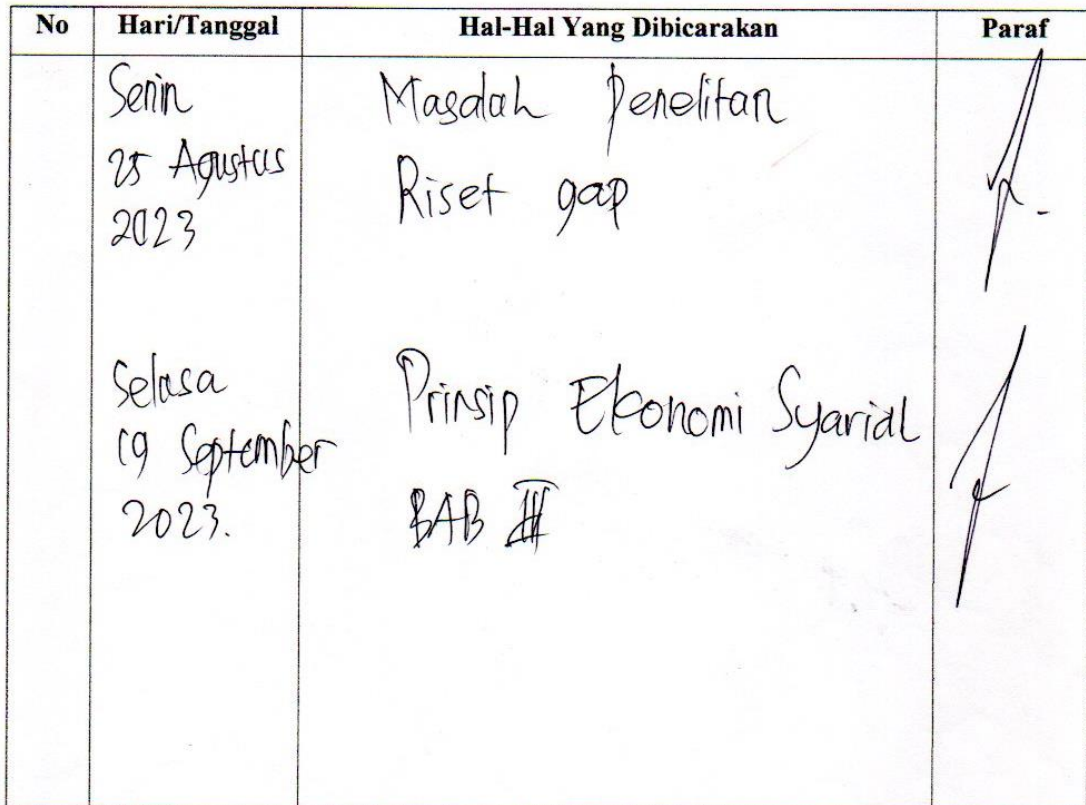 No Hari/Tanggal Hal-Hal Yang Dibicarakan Paraf
Senin
25 Agustus
2023
Masalah Penelitan
Riset gap
Selasa
19 September
2023.
Prinsip Ekonomi Syariah
BAB III